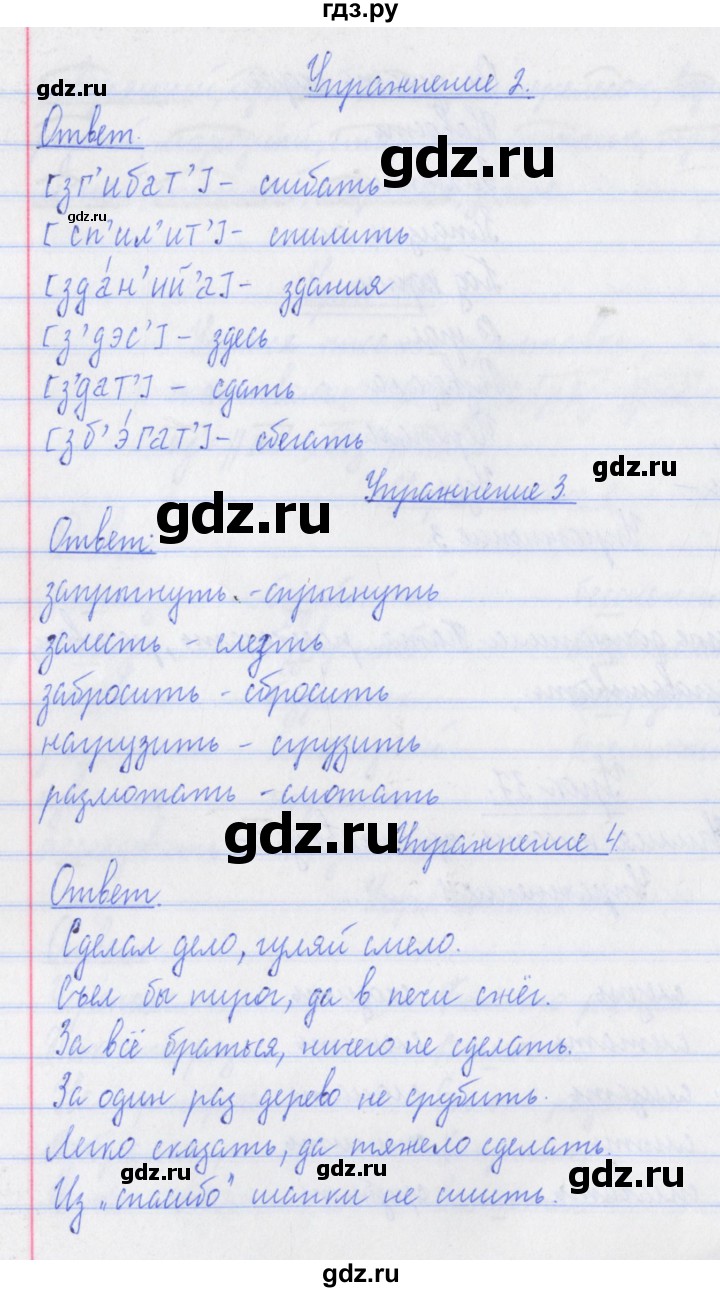 гдз.ру
gdz.ru
Упражнение 2.
Ответ.
gdz.ru
[зг'ибат']- сгибать
gdz.ru
[сп'ил'ит']- спилить
[зда́н'ий'а]- здания
[з'дэс'] - здесь
[з'дат'] - сдать
[зб'э́гат']- сбегать
Упражнение 3.
gdz.ru
gdz.ru
Ответ:
запрыгнуть - спрыгнуть
залесть - слезть
забросить - сбросить
нагрузить - сгрузить
размотать - смотать
gdz.ru
Упражнение 4
Ответ.
Сделал дело, гуляй смело.
Съел бы пирог, да в печи снёг.
За всё браться, ничего не сделать.
За один раз дерево не срубить.
Легко сказать, да тяжело сделать.
gdz.ru
gdz.ru
gdz.ru
Из „спасибо" шапки не сшить.
gdz.ru